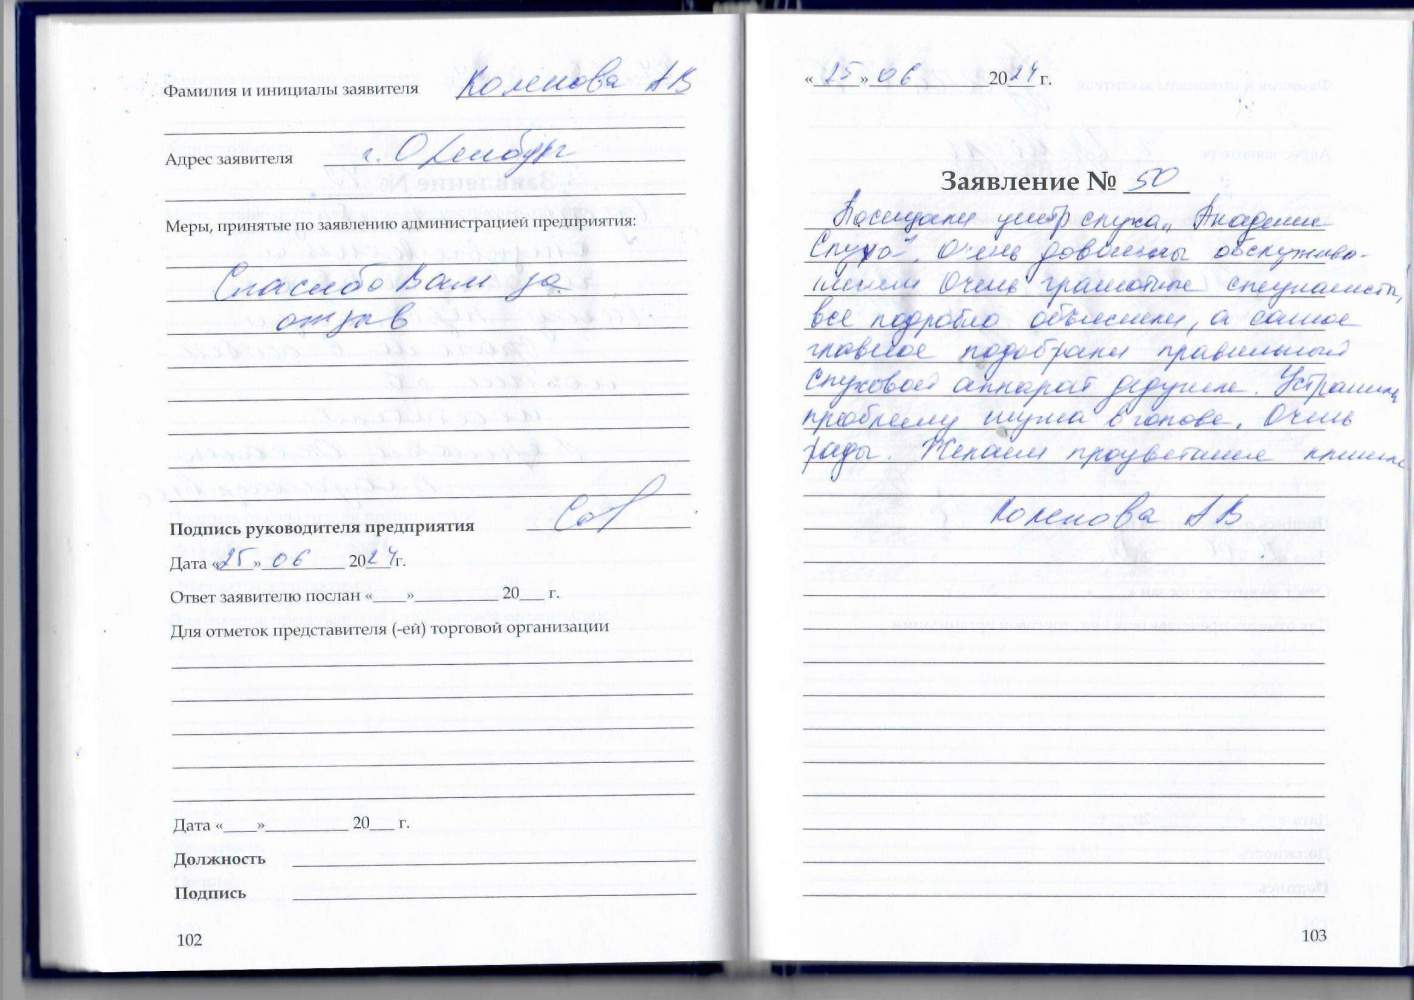 Фамилия и инициалы заявителя Коленова АВ
Адрес заявителя г. Оренбург
Меры, принятые по заявлению администрацией предприятия:
Спасибо Вам за
отзыв
Подпись руководителя предприятия
Дата «25» 06 2024г.
Ответ заявителю послан «____»__________ 20___ г.
Для отметок представителя (-ей) торговой организации
Дата «____»__________ 20___ г.
Должность
Подпись
102
«25» 06 2024 г.
Заявление № 50
Посещали центр слуха „Академия
Слуха". Очень довольны обслужива-
нием Очень грамотные специалисты,
все подробно объяснили, а самое
главное подобрали правильный
слуховой аппарат дедушке. Устранили
проблему шума в голове. Очень
рады. Желаем процветания
Коленова АВ
103